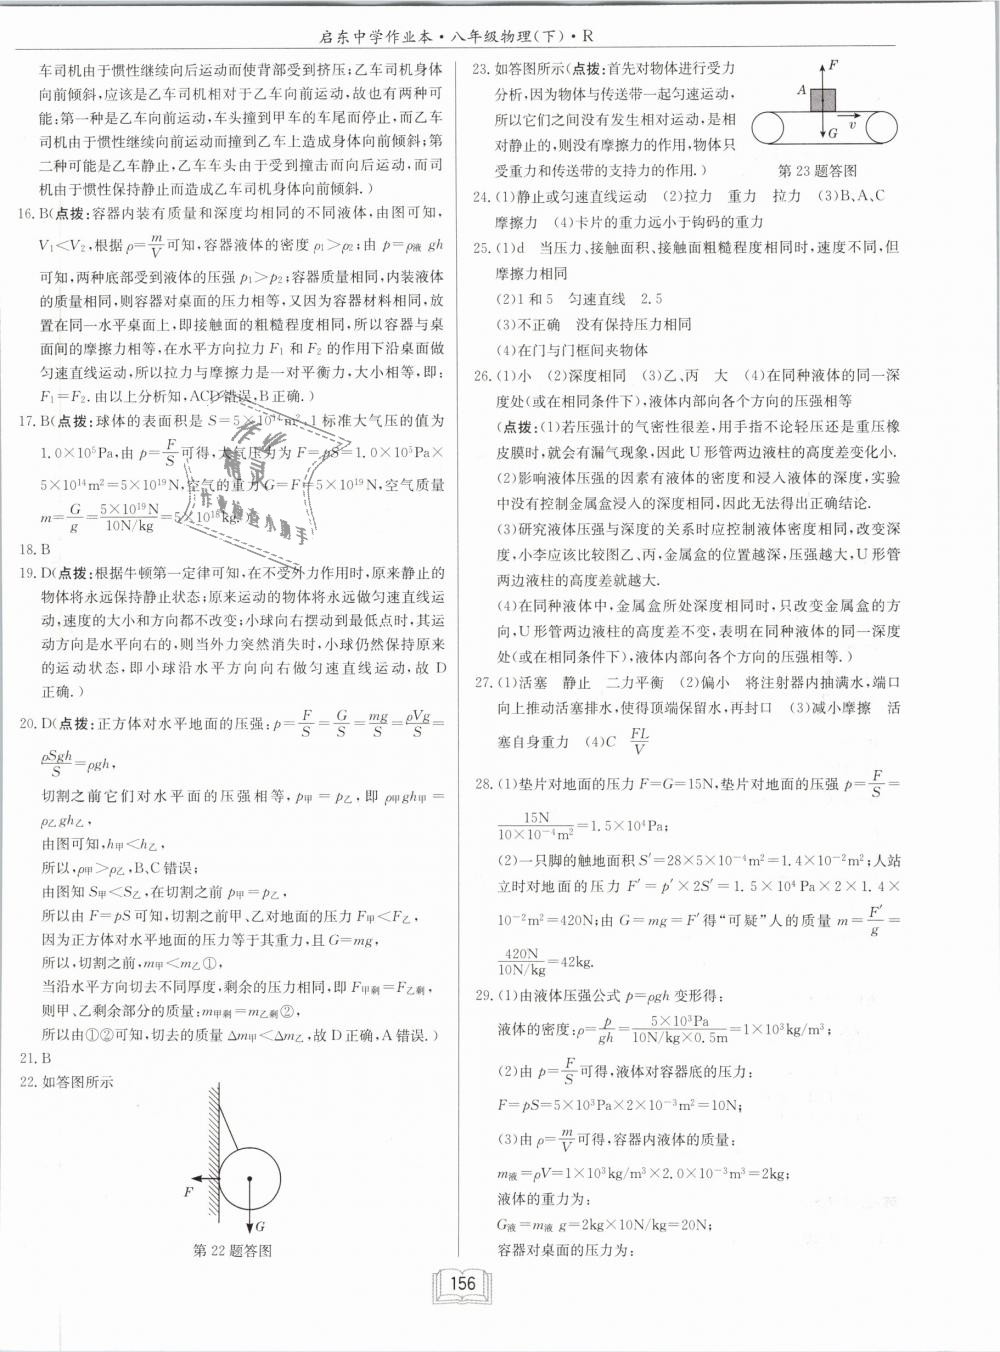 启东中学作业本·八年级物理(下)·R
车司机由于惯性继续向后运动而使背部受到挤压;乙车司机身体
向前倾斜,应该是乙车司机相对于乙车向前运动,故也有两种可
能:第一种是乙车向前运动,车头撞到甲车的车尾而停止,而乙车
司机由于惯性继续向前运动而撞到乙车上造成身体向前倾斜;第
二种可能是乙车静止,乙车车头由于受到撞击而向后运动,而司
机由于惯性保持静止而造成乙车司机身体向前倾斜.)
16. B(点拨:容器内装有质量和深度均相同的不同液体,由图可知,
V₁<V₂,根据ρ=m/V可知,容器液体的密度ρ₁>ρ₂;由 p=ρ液 gh
可知,两种底部受到液体的压强 p₁>p₂;容器质量相同,内装液体
的质量相同,则容器对桌面的压力相等,又因为容器材料相同,放
置在同一水平桌面上,即接触面的粗糙程度相同,所以容器与桌
面间的摩擦力相等,在水平方向拉力 F₁ 和 F₂ 的作用下沿桌面做
匀速直线运动,所以拉力与摩擦力是一对平衡力,大小相等,即:
F₁=F₂.由以上分析知,ACD错误,B正确.)
17. B(点拨:球体的表面积是 S=5×10¹⁴m²,1标准大气压的值为
1.0×10⁵Pa,由 p=F/S可得,大气压力为 F=pS=1.0×10⁵Pa×
5×10¹⁴m²=5×10¹⁹N,空气的重力G=F=5×10¹⁹N,空气质量
m=G/g=5×10¹⁹N/10N/kg=5×10¹⁸kg.)
18. B
19. D(点拨:根据牛顿第一定律可知,在不受外力作用时,原来静止的
物体将永远保持静止状态;原来运动的物体将永远做匀速直线运
动,速度的大小和方向都不改变;小球向右摆动到最低点时,其运
动方向是水平向右的,则当外力突然消失时,小球仍然保持原来
的运动状态,即小球沿水平方向向右做匀速直线运动,故 D
正确.)
20. D(点拨:正方体对水平地面的压强:p=F/S=G/S=mg/S=ρVg/S=
ρSgh/S=ρgh,
切割之前它们对水平面的压强相等,p甲=p乙,即 ρ甲gh甲=
ρ乙gh乙,
由图可知,h甲<h乙,
所以,ρ甲>ρ乙,B、C错误;
由图知 S甲<S乙,在切割之前 p甲=p乙,
所以由 F=pS 可知,切割之前甲、乙对地面的压力 F甲<F乙,
因为正方体对水平地面的压力等于其重力,且G=mg,
所以,切割之前,m甲<m乙①,
当沿水平方向切去不同厚度,剩余的压力相同,即 F甲剩=F乙剩,
则甲、乙剩余部分的质量:m甲剩=m乙剩②,
所以由①②可知,切去的质量 Δm甲<Δm乙,故 D正确,A错误.)
21. B
22. 如答图所示
F
G
第22题答图
23. 如答图所示(点拨:首先对物体进行受力
分析,因为物体与传送带一起匀速运动,
所以它们之间没有发生相对运动,是相
对静止的,则没有摩擦力的作用,物体只
受重力和传送带的支持力的作用.)
F
A
v
G
第23题答图
24. (1)静止或匀速直线运动 (2)拉力 重力 拉力 (3)B、A、C
摩擦力 (4)卡片的重力远小于钩码的重力
25. (1)d 当压力、接触面积、接触面粗糙程度相同时,速度不同,但
摩擦力相同
(2)1和5 匀速直线 2.5
(3)不正确 没有保持压力相同
(4)在门与门框间夹物体
26. (1)小 (2)深度相同 (3)乙、丙 大 (4)在同种液体的同一深
度处(或在相同条件下),液体内部向各个方向的压强相等
(点拨:(1)若压强计的气密性很差,用手指不论轻压还是重压橡
皮膜时,就会有漏气现象,因此 U形管两边液柱的高度差变化小.
(2)影响液体压强的因素有液体的密度和浸入液体的深度,实验
中没有控制金属盒浸入的深度相同,因此无法得出正确结论.
(3)研究液体压强与深度的关系时应控制液体密度相同,改变深
度,小李应该比较图乙、丙,金属盒的位置越深,压强越大,U形管
两边液柱的高度差就越大.
(4)在同种液体中,金属盒所处深度相同时,只改变金属盒的方
向,U形管两边液柱的高度差不变,表明在同种液体的同一深度
处(或在相同条件下),液体内部向各个方向的压强相等.)
27. (1)活塞 静止 二力平衡 (2)偏小 将注射器内抽满水,端口
向上推动活塞排水,使得顶端保留水,再封口 (3)减小摩擦 活
塞自身重力 (4)C FL/V
28. (1)垫片对地面的压力 F=G=15N,垫片对地面的压强 p=F/S=
15N/10×10⁻⁴m²=1.5×10⁴Pa;
(2)一只脚的触地面积 S′=28×5×10⁻⁴m²=1.4×10⁻²m²;人站
立时对地面的压力 F′=p′×2S′=1.5×10⁴Pa×2×1.4×
10⁻²m²=420N;由 G=mg=F′得“可疑”人的质量 m=F′/g=
420N/10N/kg=42kg.
29. (1)由液体压强公式 p=ρgh变形得:
液体的密度:ρ=p/gh=5×10³Pa/10N/kg×0.5m=1×10³kg/m³;
(2)由 p=F/S可得,液体对容器底的压力:
F=pS=5×10³Pa×2×10⁻³m²=10N;
(3)由ρ=m/V可得,容器内液体的质量:
m液=ρV=1×10³kg/m³×2.0×10⁻³m³=2kg;
液体的重力为:
G液=m液 g=2kg×10N/kg=20N;
容器对桌面的压力为:
作业
精灵
作业检查小助手
156